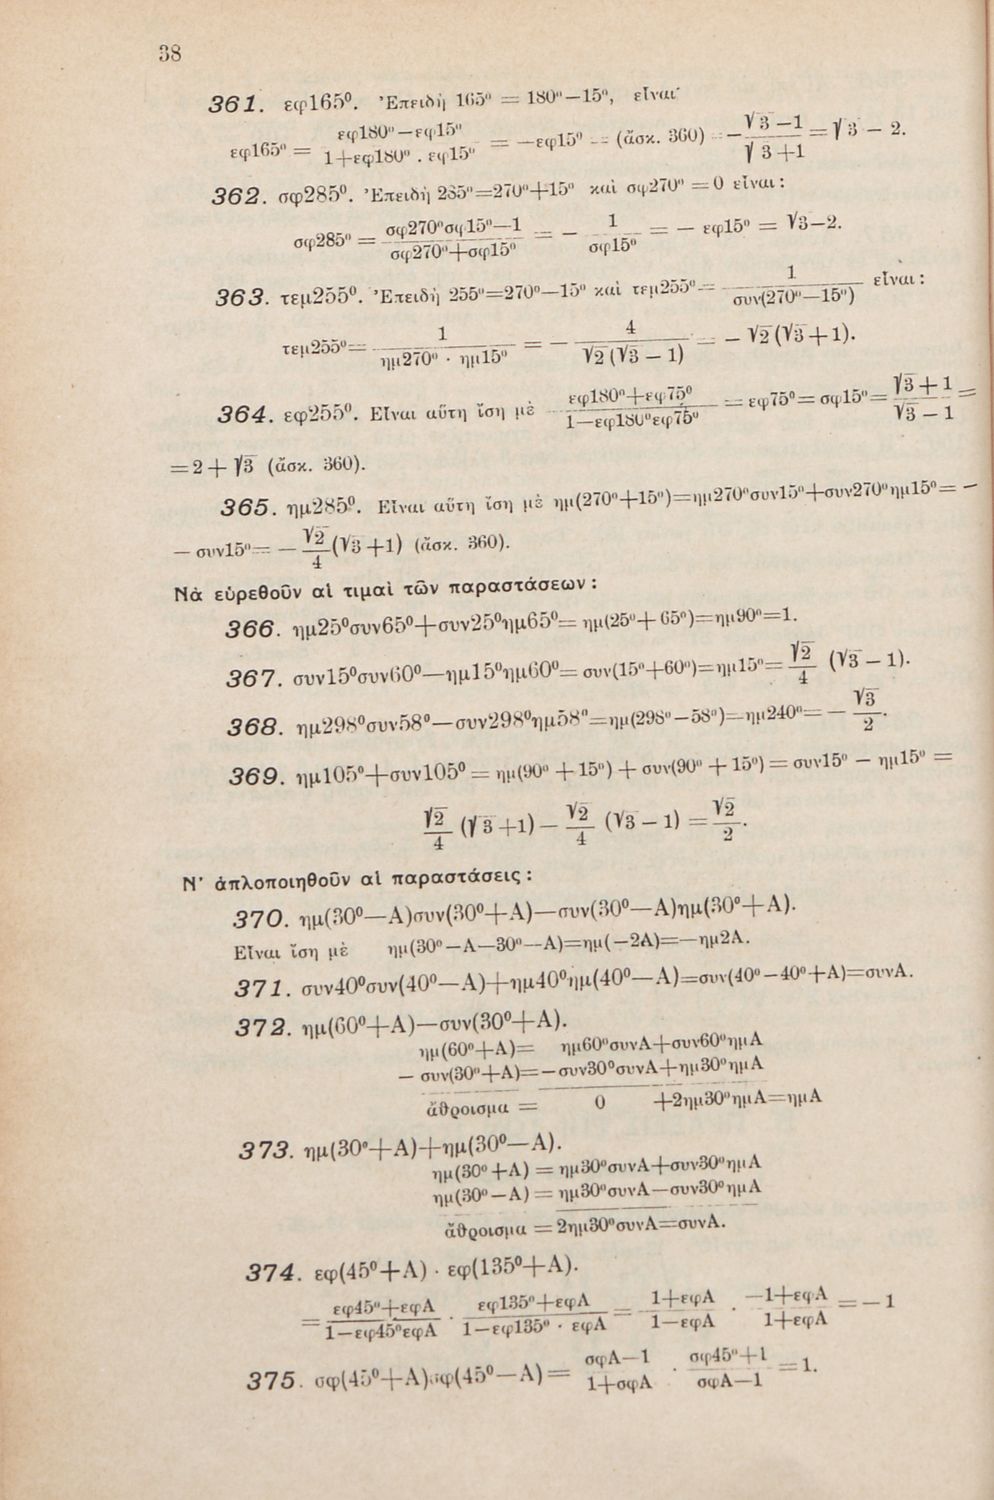 38
361. εφ165⁰. Ἐπειδὴ 165⁰ = 180⁰—15⁰, εἶναι
εφ165⁰ = (εφ180⁰—εφ15⁰)/(1+εφ180⁰ . εφ15⁰) = —εφ15⁰ = (ἄσκ. 360) = —(√3 —1)/(√3 +1) = √3 — 2.
362. σφ285⁰. Ἐπειδὴ 285⁰=270⁰+15⁰ καὶ σφ270⁰ = 0 εἶναι :
σφ285⁰ = (σφ270⁰σφ15⁰—1)/(σφ270⁰+σφ15⁰) = — 1/σφ15⁰ = — εφ15⁰ = √3—2.
363. τεμ255⁰. Ἐπειδὴ 255⁰=270⁰—15⁰ καὶ τεμ255⁰= 1/συν(270⁰—15⁰) εἶναι :
τεμ255⁰= 1/(ημ270⁰ · ημ15⁰) = — 4/(√2 (√3 — 1) = — √2 (√3+1).
364. εφ255⁰. Εἶναι αὕτη ἴση μὲ (εφ180⁰+εφ75⁰)/(1—εφ180⁰εφ75⁰) = εφ75⁰= σφ15⁰= (√3+1)/(√3 — 1) =
= 2 + √3 (ἄσκ. 360).
365. ημ285⁰. Εἶναι αὕτη ἴση μὲ ημ(270⁰+15⁰)=ημ270⁰συν15⁰+συν270⁰ημ15⁰= —
— συν15⁰= — √2/4 (√3 +1) (ἄσκ. 360).
Νὰ εὑρεθοῦν αἱ τιμαὶ τῶν παραστάσεων :
366. ημ25⁰συν65⁰+συν25⁰ημ65⁰= ημ(25⁰+ 65⁰)=ημ90⁰=1.
367. συν15⁰συν60⁰—ημ15⁰ημ60⁰= συν(15⁰+60⁰)=ημ15⁰= √2/4 (√3 — 1).
368. ημ298⁰συν58⁰—συν298⁰ημ58⁰=ημ(298⁰—58⁰)=ημ240⁰= — √3/2.
369. ημ105⁰+συν105⁰ = ημ(90⁰ + 15⁰) + συν(90⁰ + 15⁰) = συν15⁰ — ημ15⁰ =
√2/4 (√3 +1) — √2/4 (√3 — 1) = √2/2.
Ν' ἁπλοποιηθοῦν αἱ παραστάσεις :
370. ημ(30⁰—Α)συν(30⁰+Α)—συν(30⁰—Α)ημ(30⁰+Α).
Εἶναι ἴση μὲ ημ(30⁰—Α—30⁰—Α)=ημ(—2Α)=—ημ2Α.
371. συν40⁰συν(40⁰—Α)+ημ40⁰ημ(40⁰—Α)=συν(40⁰—40⁰+Α)=συνΑ.
372. ημ(60⁰+Α)—συν(30⁰+Α).
ημ(60⁰+Α)= ημ60⁰συνΑ+συν60⁰ημΑ
— συν(30⁰+Α)=—συν30⁰συνΑ+ημ30⁰ημΑ
ἄθροισμα = 0 +2ημ30⁰ημΑ=ημΑ
373. ημ(30⁰+Α)+ημ(30⁰—Α).
ημ(30⁰+Α) = ημ30⁰συνΑ+συν30⁰ημΑ
ημ(30⁰—Α) = ημ30⁰συνΑ—συν30⁰ημΑ
ἄθροισμα = 2ημ30⁰συνΑ=συνΑ.
374. εφ(45⁰+Α) · εφ(135⁰+Α).
= (εφ45⁰+εφΑ)/(1—εφ45⁰εφΑ) · (εφ135⁰+εφΑ)/(1—εφ135⁰ · εφΑ) = (1+εφΑ)/(1—εφΑ) · (—1+εφΑ)/(1+εφΑ) = — 1
375. σφ(45⁰+Α)σφ(45⁰—Α)= (σφΑ—1)/(1+σφΑ) · (σφ45⁰+1)/(σφΑ—1) = 1.